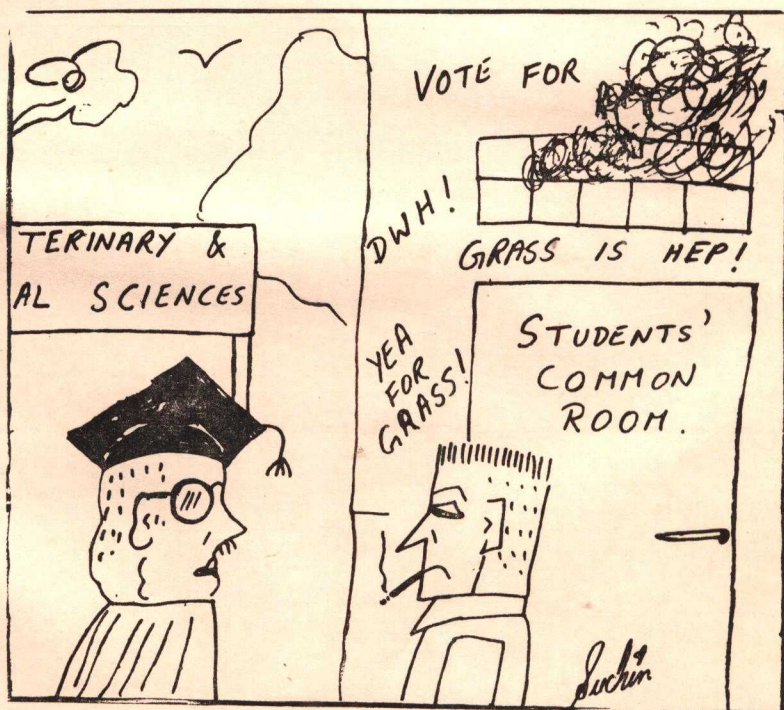 TERINARY &
AL SCIENCES
VOTE FOR
DWH!
GRASS IS HEP!
YEA
FOR
GRASS!
STUDENTS'
COMMON
ROOM.